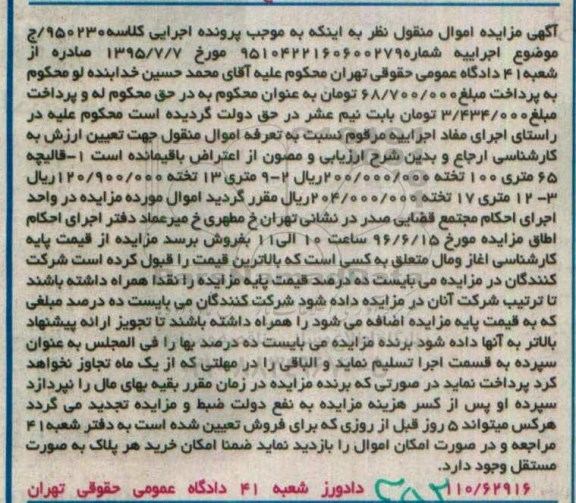 آگهی مزایده اموال منقول نظر به اینکه به موجب پرونده اجرایی کلاسه ۹۵۰۲۳۰/ج
موضوع اجراییه شماره ۹۵۱۰۴۲۲۱۶۰۶۰۰۲۷۹ مورخ ۱۳۹۵/۷/۷ صادره از
شعبه ۴۱ دادگاه عمومی حقوقی تهران محکوم علیه آقای محمد حسین خدابنده لو محکوم
به پرداخت مبلغ ۶۸/۷۰۰/۰۰۰ تومان به عنوان محکوم به در حق محکوم له و پرداخت
مبلغ ۳/۴۳۴/۰۰۰ تومان بابت نیم عشر در حق دولت گردیده است محکوم علیه در
راستای اجرای مفاد اجراییه مرقوم نسبت به تعرفه اموال منقول جهت تعیین ارزش به
کارشناسی ارجاع و بدین شرح ارزیابی و مصون از اعتراض باقیمانده است ۱-قالیچه
۶۵ متری ۱۰۰ تخته ۲۰۰/۰۰۰/۰۰۰ریال ۲-۹ متری ۱۳ تخته ۱۲۰/۹۰۰/۰۰۰ریال
۳- ۱۲ متری ۱۷ تخته ۲۰۴/۰۰۰/۰۰۰ریال مقرر گردید اموال مورده مزایده در واحد
اجرای احکام مجتمع قضایی صدر در نشانی تهران خ مطهری خ میرعماد دفتر اجرای احکام
اطاق مزایده مورخ ۹۶/۶/۱۵ ساعت ۱۰ الی ۱۱ بفروش برسد مزایده از قیمت پایه
کارشناسی اغاز ومال متعلق به کسی است که بالاترین قیمت را قبول کرده است شرکت
کنندگان در مزایده می بایست ده درصد قیمت پایه مزایده را نقدا همراه داشته باشند
تا ترتیب شرکت آنان در مزایده داده شود شرکت کنندگان می بایست ده درصد مبلغی
که به قیمت پایه مزایده اضافه می شود را همراه داشته باشند تا تجویز ارائه پیشنهاد
بالاتر به آنها داده شود برنده مزایده می بایست ده درصد بها را فی المجلس به عنوان
سپرده به قسمت اجرا تسلیم نماید و الباقی را در مهلتی که از یک ماه تجاوز نخواهد
کرد پرداخت نماید در صورتی که برنده مزایده در زمان مقرر بقیه بهای مال را نپردازد
سپرده او پس از کسر هزینه مزایده به نفع دولت ضبط و مزایده تجدید می گردد
هرکس میتواند ۵ روز قبل از روزی که برای فروش تعیین شده است به دفتر شعبه ۴۱
مراجعه و در صورت امکان اموال را بازدید نماید ضمنا امکان خرید هر پلاک به صورت
مستقل وجود دارد.
۱۱۰/۶۲۹۱۶ دادورز شعبه ۴۱ دادگاه عمومی حقوقی تهران